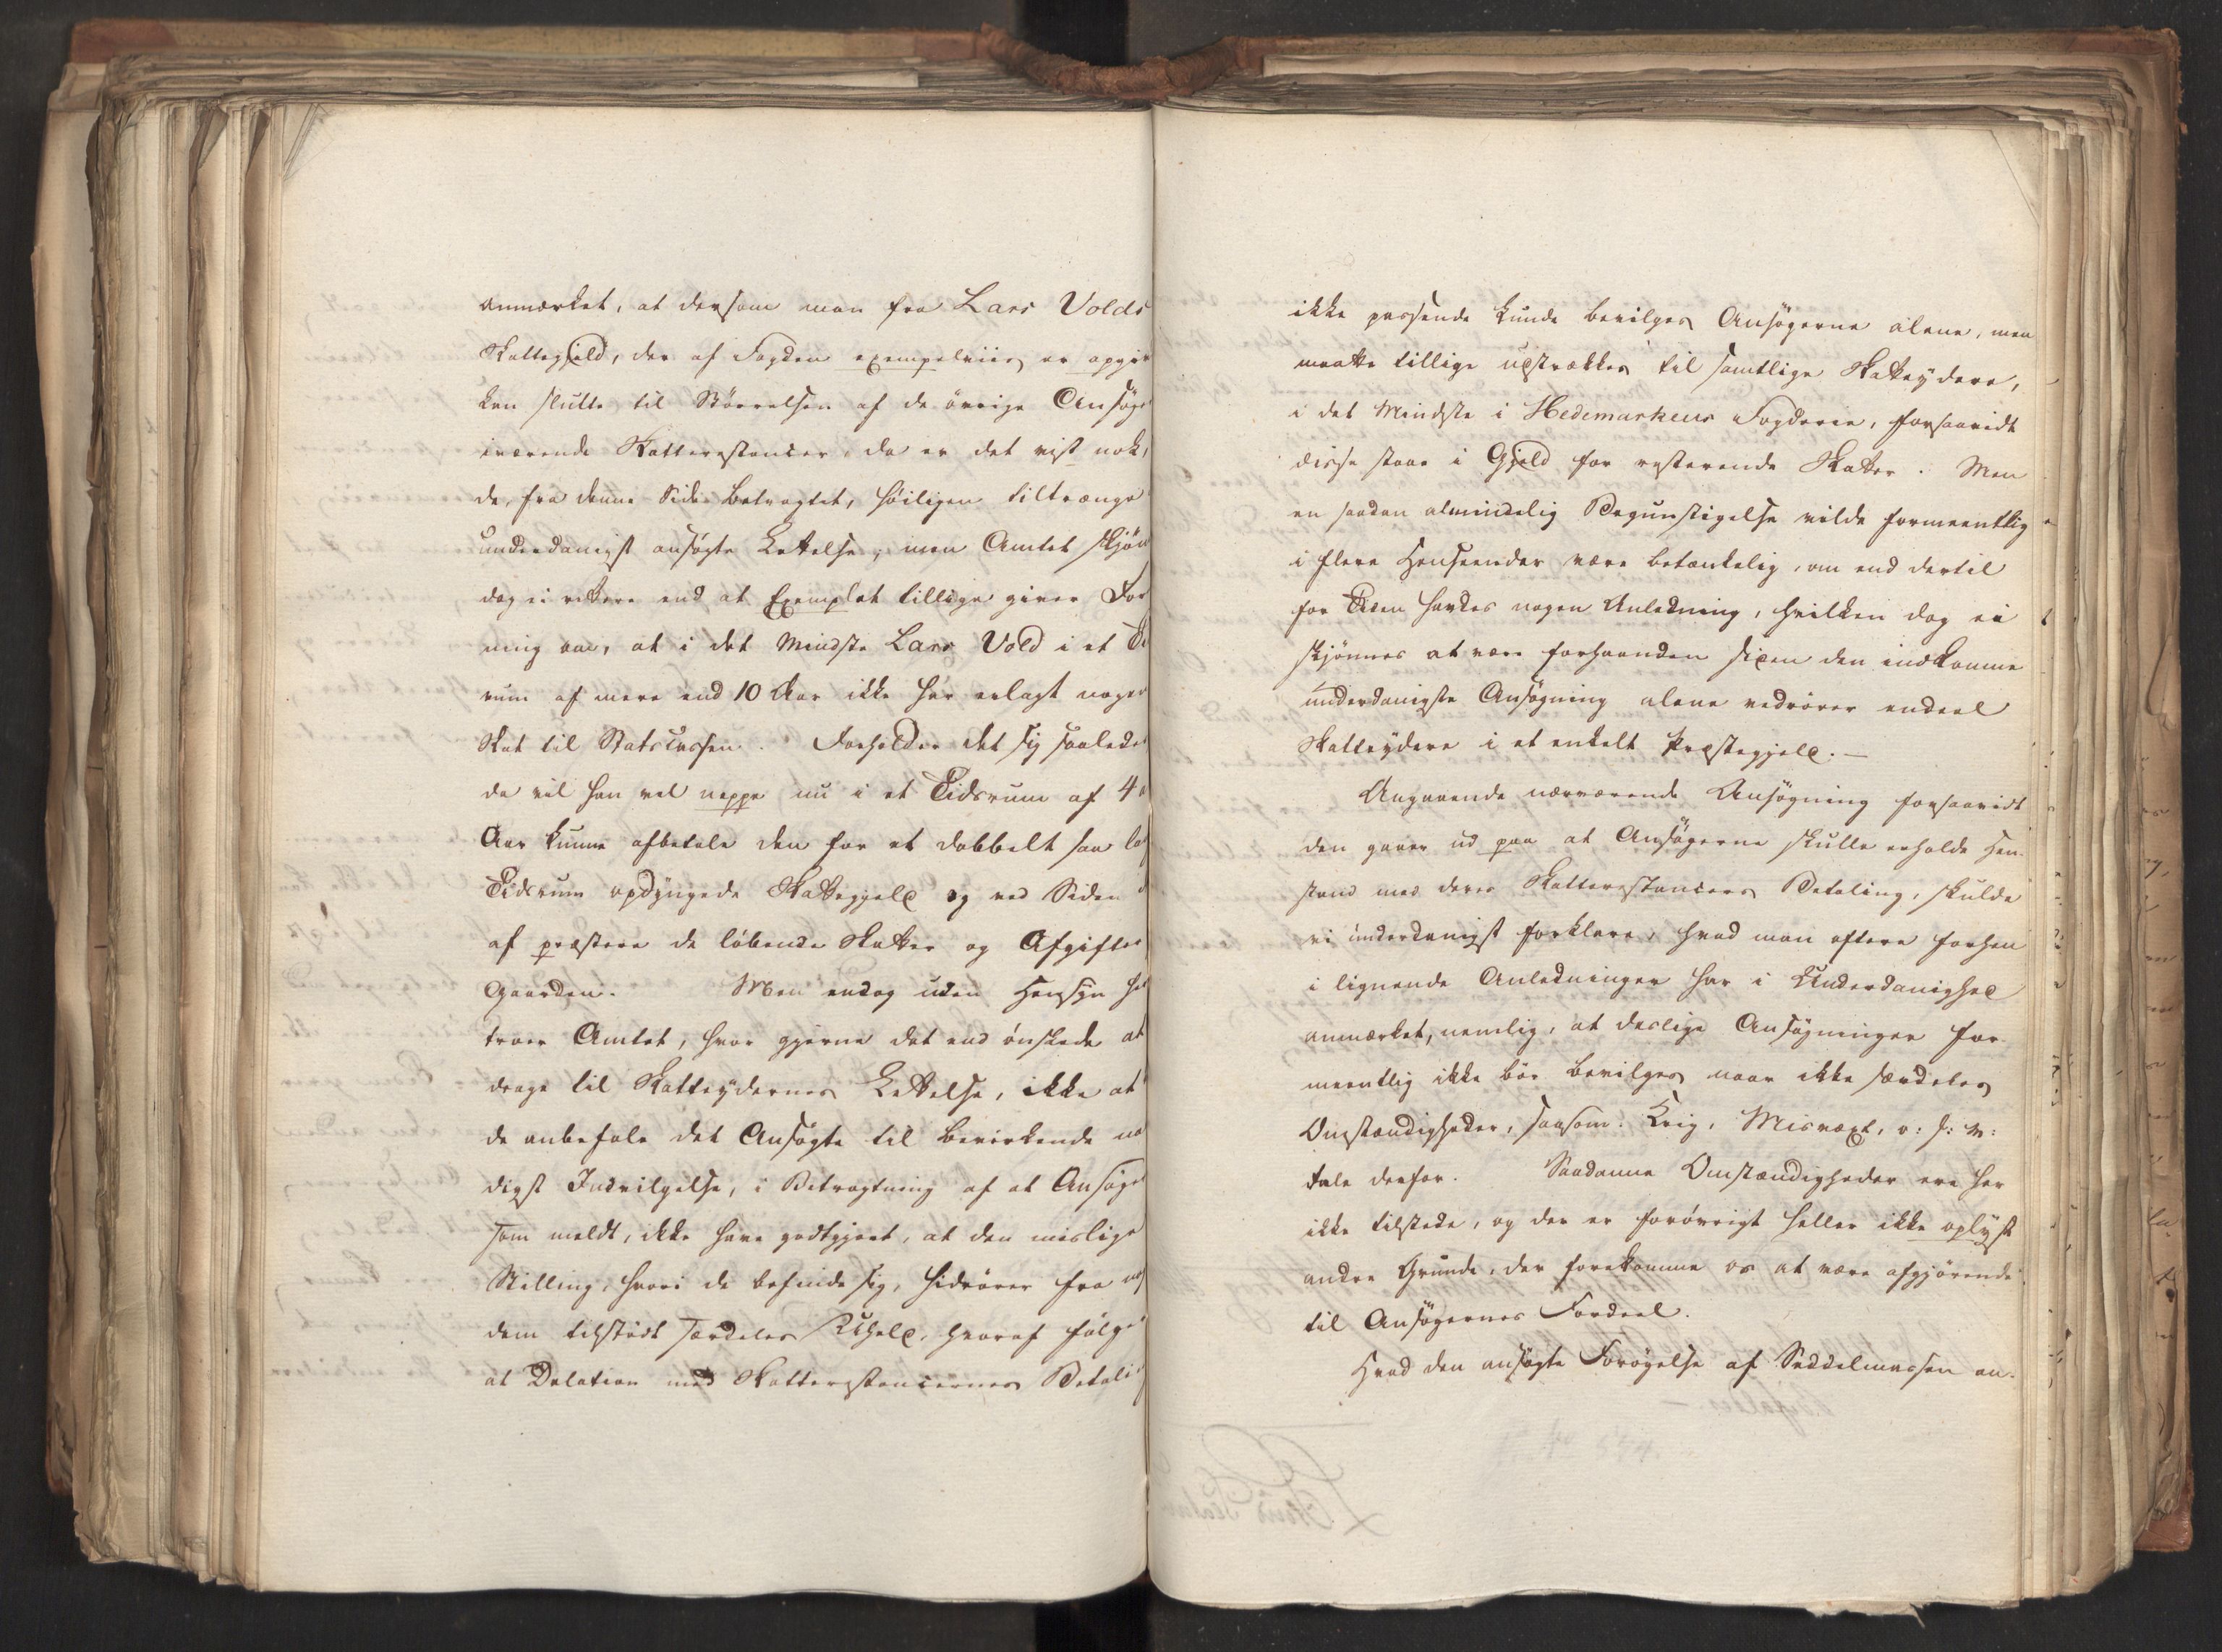 anmærket, at dersom man fra Lars Volds
Skattegjeld, der af Fogden exempelviis er opgi
kan slutte til Størrelsen af de øvrige Ansøge
iværende Skatterestancer, da er det vist nok,
de, fra denne Side betragtet, høiligen tiltrænge
underdanigst ansøgte Lettelse; men Amtet skjøn
dog ei rettere end at Exemplet tillige giver For
ning om, at i det Mindste Lars Vold i et Ti
rum af mere end 10 Aar ikke har erlagt nogen
Skat til Statscassen. Forholder det sig saaledes
da vil han vel neppe nu i et Tidsrum af 4
Aar kunne afbetale den for et dobbelt saa la
Tidsrum opdyngede Skattegjeld og ved Siden
af præstere de løbende Skatter og Afgifter
Gaarden. Men endog uden Hensyn he
troer Amtet, hvor gjerne det end ønskede at
drage til Skatteydernes Lettelse, ikke at
de anbefale det Ansøgte til bevirkende na
digst Indvilgelse, i Betragtning af at Ansøge
som meldt, ikke have godtgjort, at den mislige
Stilling, hvori de befinde sig, hidrører fra no
dem tilstødt særdeles Uheld, hvoraf følge
at Dilation med Skatterestancernes Betali
ikke passende kunde bevilges Ansøgerne alene, men
maatte tillige udstrækkes til samtlige Skatteydere,
i det Mindste i Hedemarkens Fogderie, forsaavidt
disse staae i Gjeld for resterende Skatter. Men
en saadan almindelig Begunstigelse vilde formeentlig
i flere Henseender være betænkelig, om end dertil
for Tiden havdes nogen Anledning, hvilken dog ei
skjønnes at være forhaanden siden den indkomne
underdanigste Ansøgning alene vedrører endeel
Skatteydere i et enkelt Præstegjeld. —
Angaaende nærværende Ansøgning forsaavidt
den gaaer ud paa at Ansøgerne skulle erholde Hen-
stand med deres Skatterestancers Betaling, skulde
vi underdanigst forklare, hvad man oftere forhen
i lignende Anledninger har i Underdanighed
anmærket, nemlig, at deslige Ansøgninger for-
meentlig ikke bør bevilges naar ikke særdeles
Omstændigheder, saasom: Krig, Misvæxt, o: s: v:
tale derfor. Saadanne Omstændigheder ere her
ikke tilstede, og der er forøvrigt heller ikke oplyst
andre Grunde, der forekomme os at være afgjørende
til Ansøgernes Fordeel.
Hvad den ansøgte Forøgelse af Seddelmassen an-